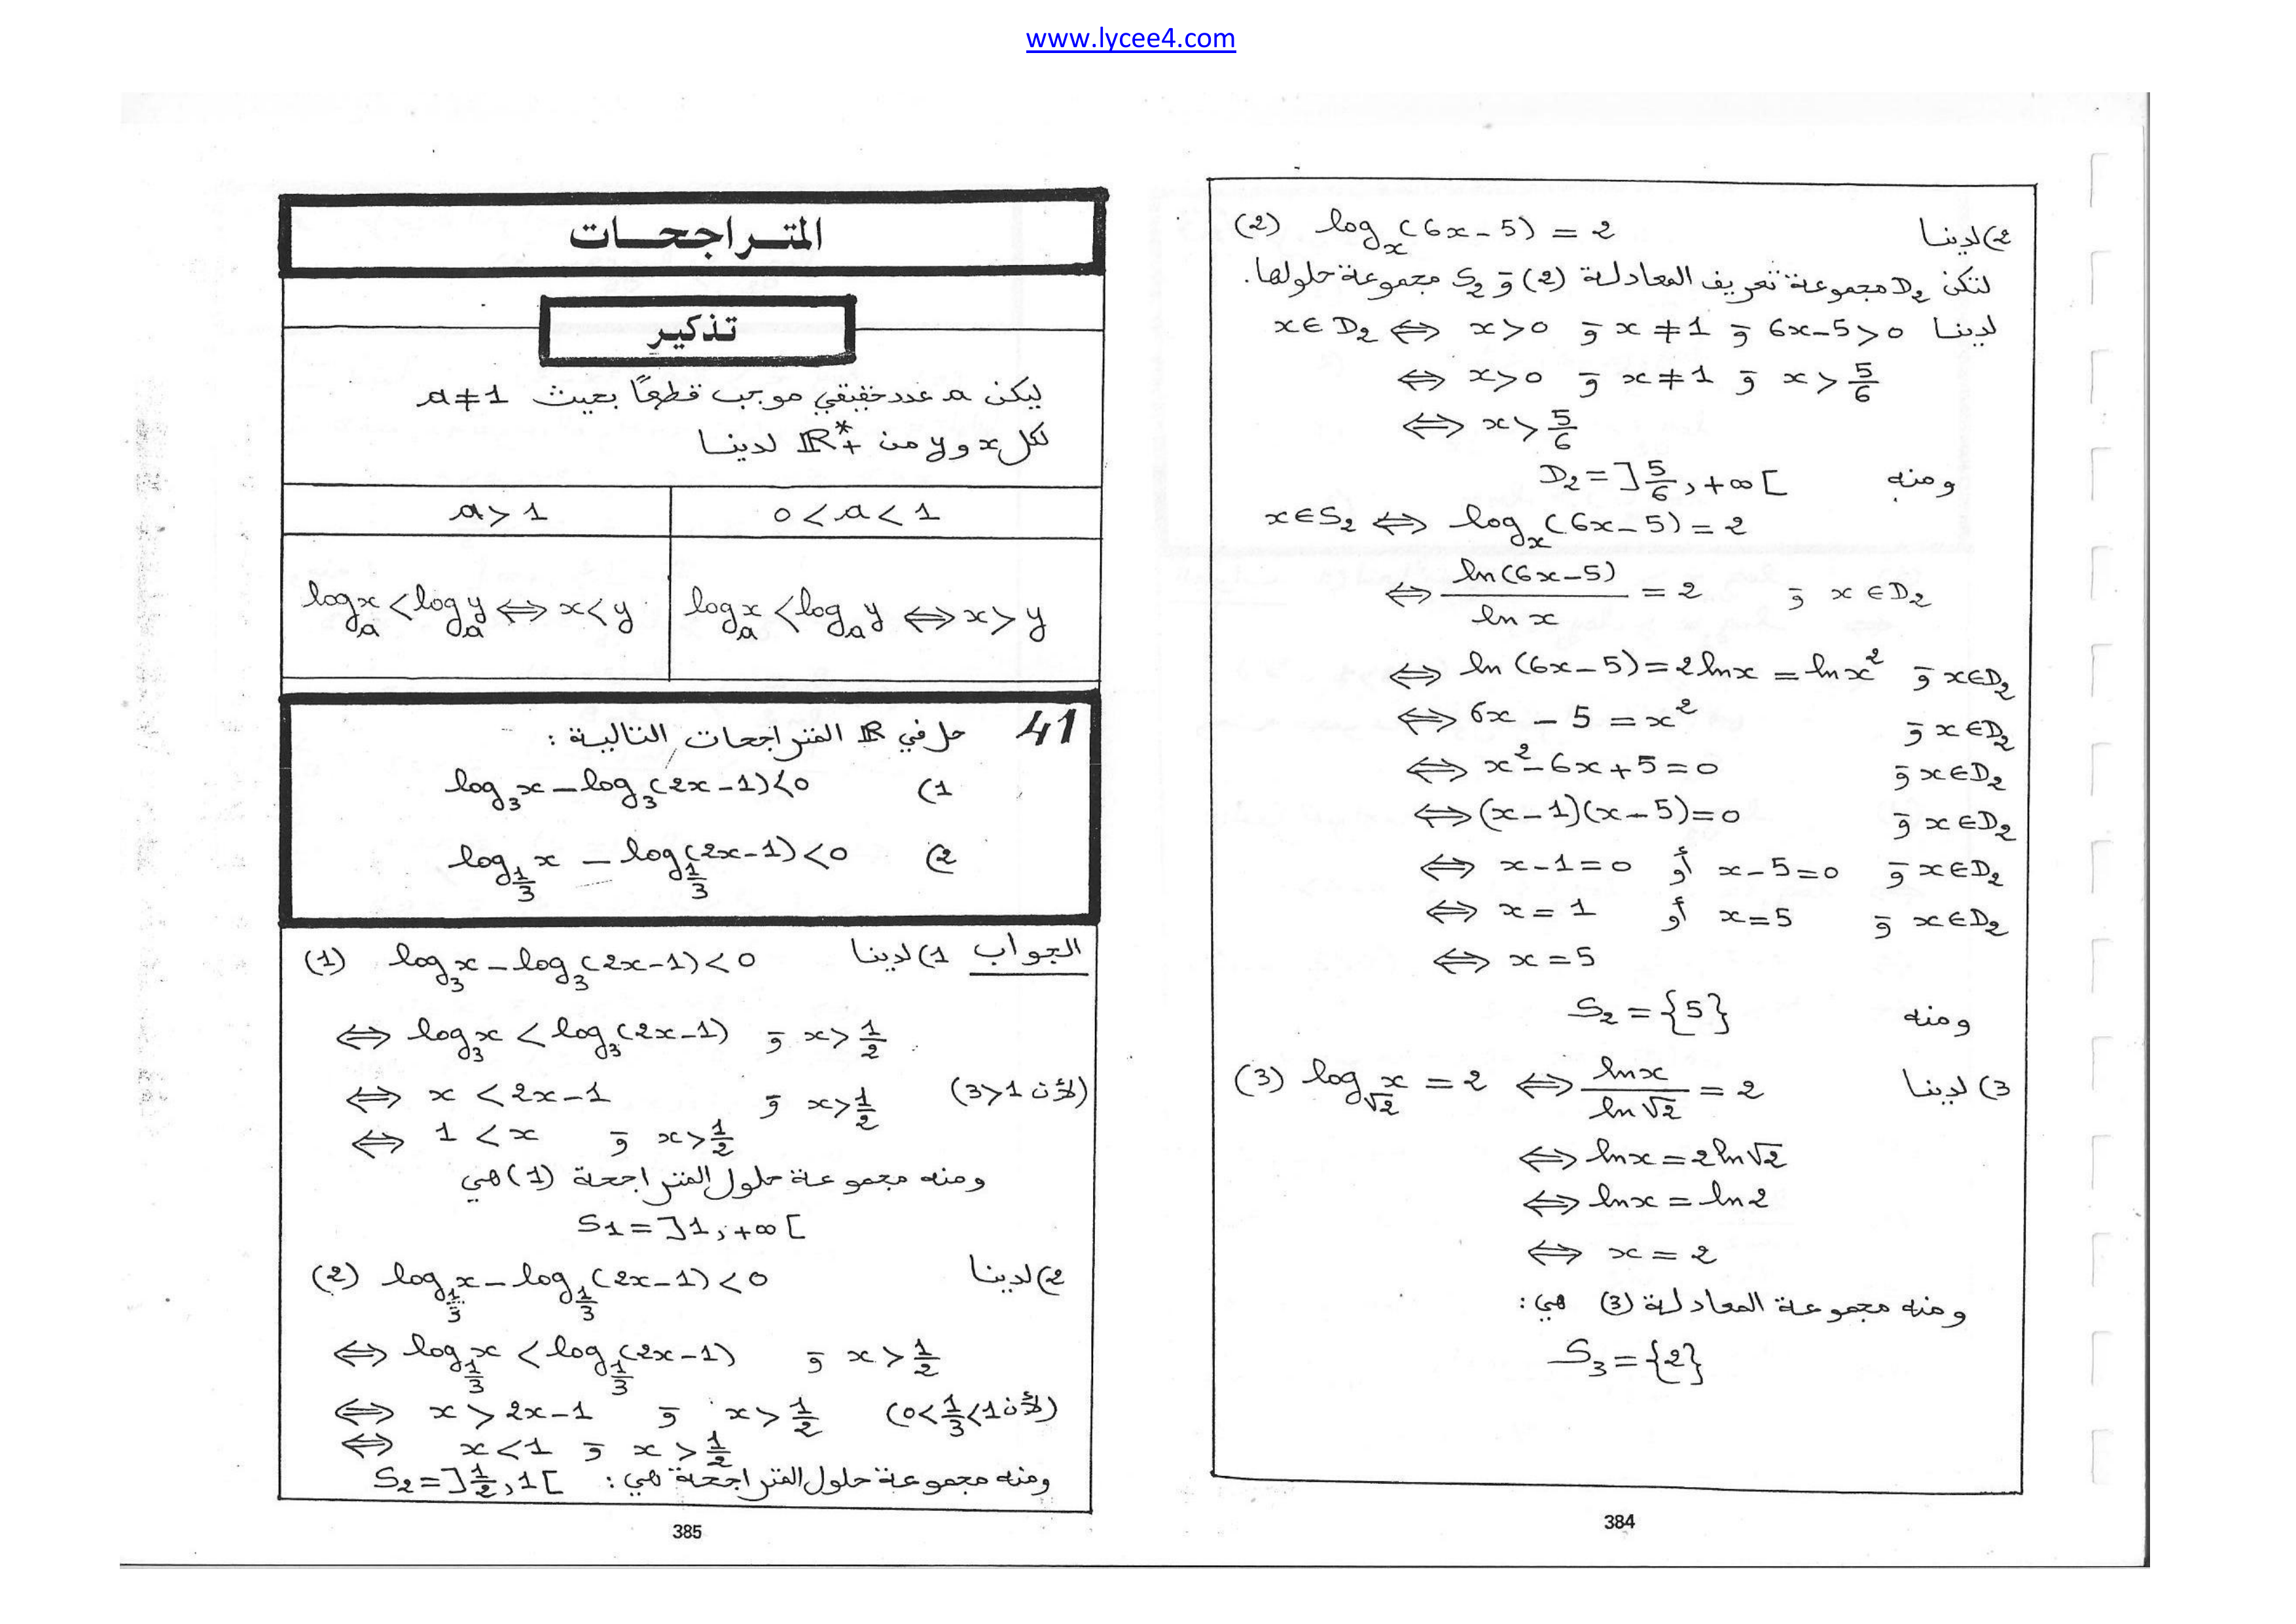 www.lycee4.com
2) لدينا (2) log_x(6x-5) = 2
لتكن D₂ مجموعة تعريف المعادلة (2) و S₂ مجموعة حلولها.
لدينا x∈D₂ ⟺ x>0 و x≠1 و 6x-5>0
⟺ x>0 و x≠1 و x>5/6
⟺ x>5/6
ومنه D₂=]5/6,+∞[
x∈S₂ ⟺ log_x(6x-5)=2
⟺ ln(6x-5)/ln x = 2 و x∈D₂
⟺ ln(6x-5)=2lnx=lnx² و x∈D₂
⟺ 6x-5=x² و x∈D₂
⟺ x²-6x+5=0 و x∈D₂
⟺ (x-1)(x-5)=0 و x∈D₂
⟺ x-1=0 أو x-5=0 و x∈D₂
⟺ x=1 أو x=5 و x∈D₂
⟺ x=5
ومنه S₂={5}
3) لدينا (3) log_√2 x = 2 ⟺ lnx/ln√2 = 2
⟺ lnx=2ln√2
⟺ lnx=ln2
⟺ x=2
ومنه مجموعة المعادلة (3) هي:
S₃={2}
384
المتراجحات
تذكير
ليكن a عدد حقيقي موجب قطعًا بحيث a≠1
لكل x و y من ℝ*₊ لدينا
a>1 0<a<1
log_a x < log_a y ⟺ x<y log_a x < log_a y ⟺ x>y
41 حل في ℝ المتراجحات التالية:
1) log₃x - log₃(2x-1)<0
2) log_1/3 x - log_1/3(2x-1)<0
الجواب 1) لدينا (1) log₃x - log₃(2x-1)<0
⟺ log₃x < log₃(2x-1) و x>1/2
⟺ x<2x-1 و x>1/2 (لأن 3>1)
⟺ 1<x و x>1/2
ومنه مجموعة حلول المتراجحة (1) هي
S₁=]1,+∞[
2) لدينا (2) log_1/3 x - log_1/3(2x-1)<0
⟺ log_1/3 x < log_1/3(2x-1) و x>1/2
⟺ x>2x-1 و x>1/2 (لأن 0<1/3<1)
⟺ x<1 و x>1/2
ومنه مجموعة حلول المتراجحة هي: S₂=]1/2,1[
385